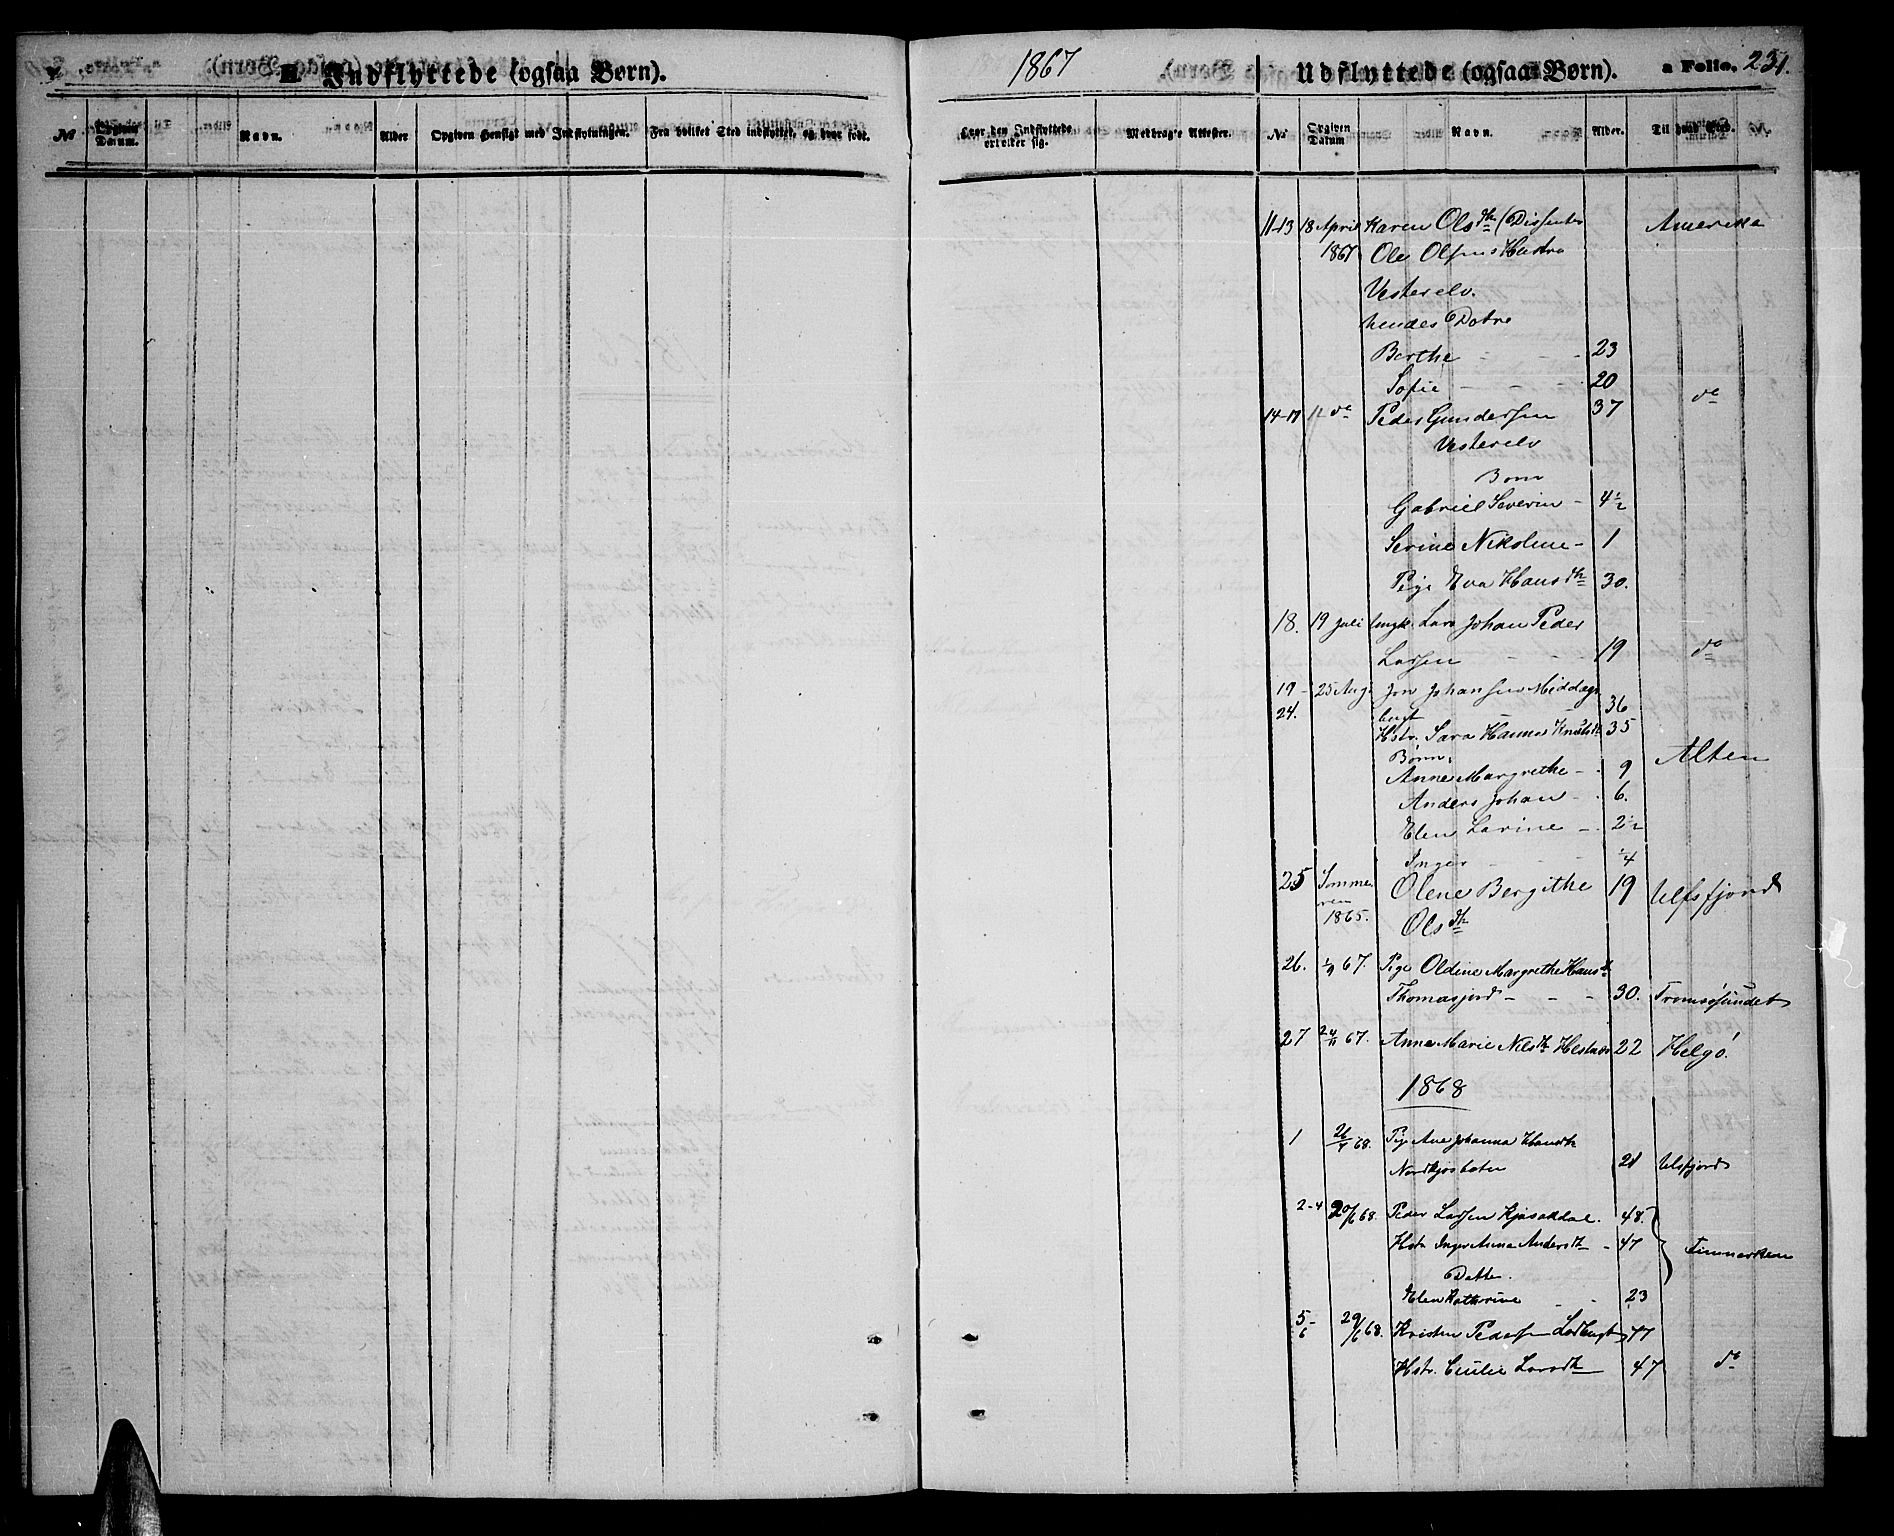 II. Indflyttede (ogsaa Børn).
1867
Udflyttede (ogsaa Børn).
a Folio, 231.
No
Opgiven Datum.
Navn.
Alder
Opgiven Hensigt med Indflytningen.
Fra hvilket Sted indflyttet, og hvor født.
Hvor den Indflyttede
Medbragte Attester.
No
Opgiven Datum
Navn.
Alder.
Til hvad Sted.
11-13 18 April Karen Olsdtr (Dissenter Amerika
1867 Ole Olsens Hustru
Vesterelv.
hendes Døtre
Berthe - - - 23
Sofie - - - 20
14-17 12 do Peder Gundersen 37 do
Vesterelv
Børn
Gabriel Severin - 4½
Serine Nikoline - 1
Pige Eva Hansdtr 30.
18. 19 Juli Ungk. Lars Johan Peder
Larsen - - - 19 do
19 - 25 Aug. Jon Johansen Middags
24. bugt 36
Hstr. Sara Hanna Knutsdtr 35
Børn:
Anne Margrethe - 9 Alten
Anders Johan - 6.
Elen Larine - 2½
Inger - - ¼
25 Somme Olene Bergithe 19 Ulfsfjord
ren
1865. Olsdtr
26. 1/9 67. Pige Oldine Margrethe Hansdtr
Thomasjord - - - 30. Tromsøsundet
27 24/11 67. Anne Marie Nilsdtr Hestnæs 22 Helgø.
1868
1 26/4 68. Pige Ane Johanna Hansdtr
Nordkjosboten 21 Ulsfjord
2-4 20/6 68. Peder Larsen 48.
Hstr Inger Anna Andersdtr - 47 Finmarken
Datter.
Elen Kathrine - - 23
5-6 29/6 68. Kristen Pedersen 47
Hstr. Cecilie Larsdtr 47 do